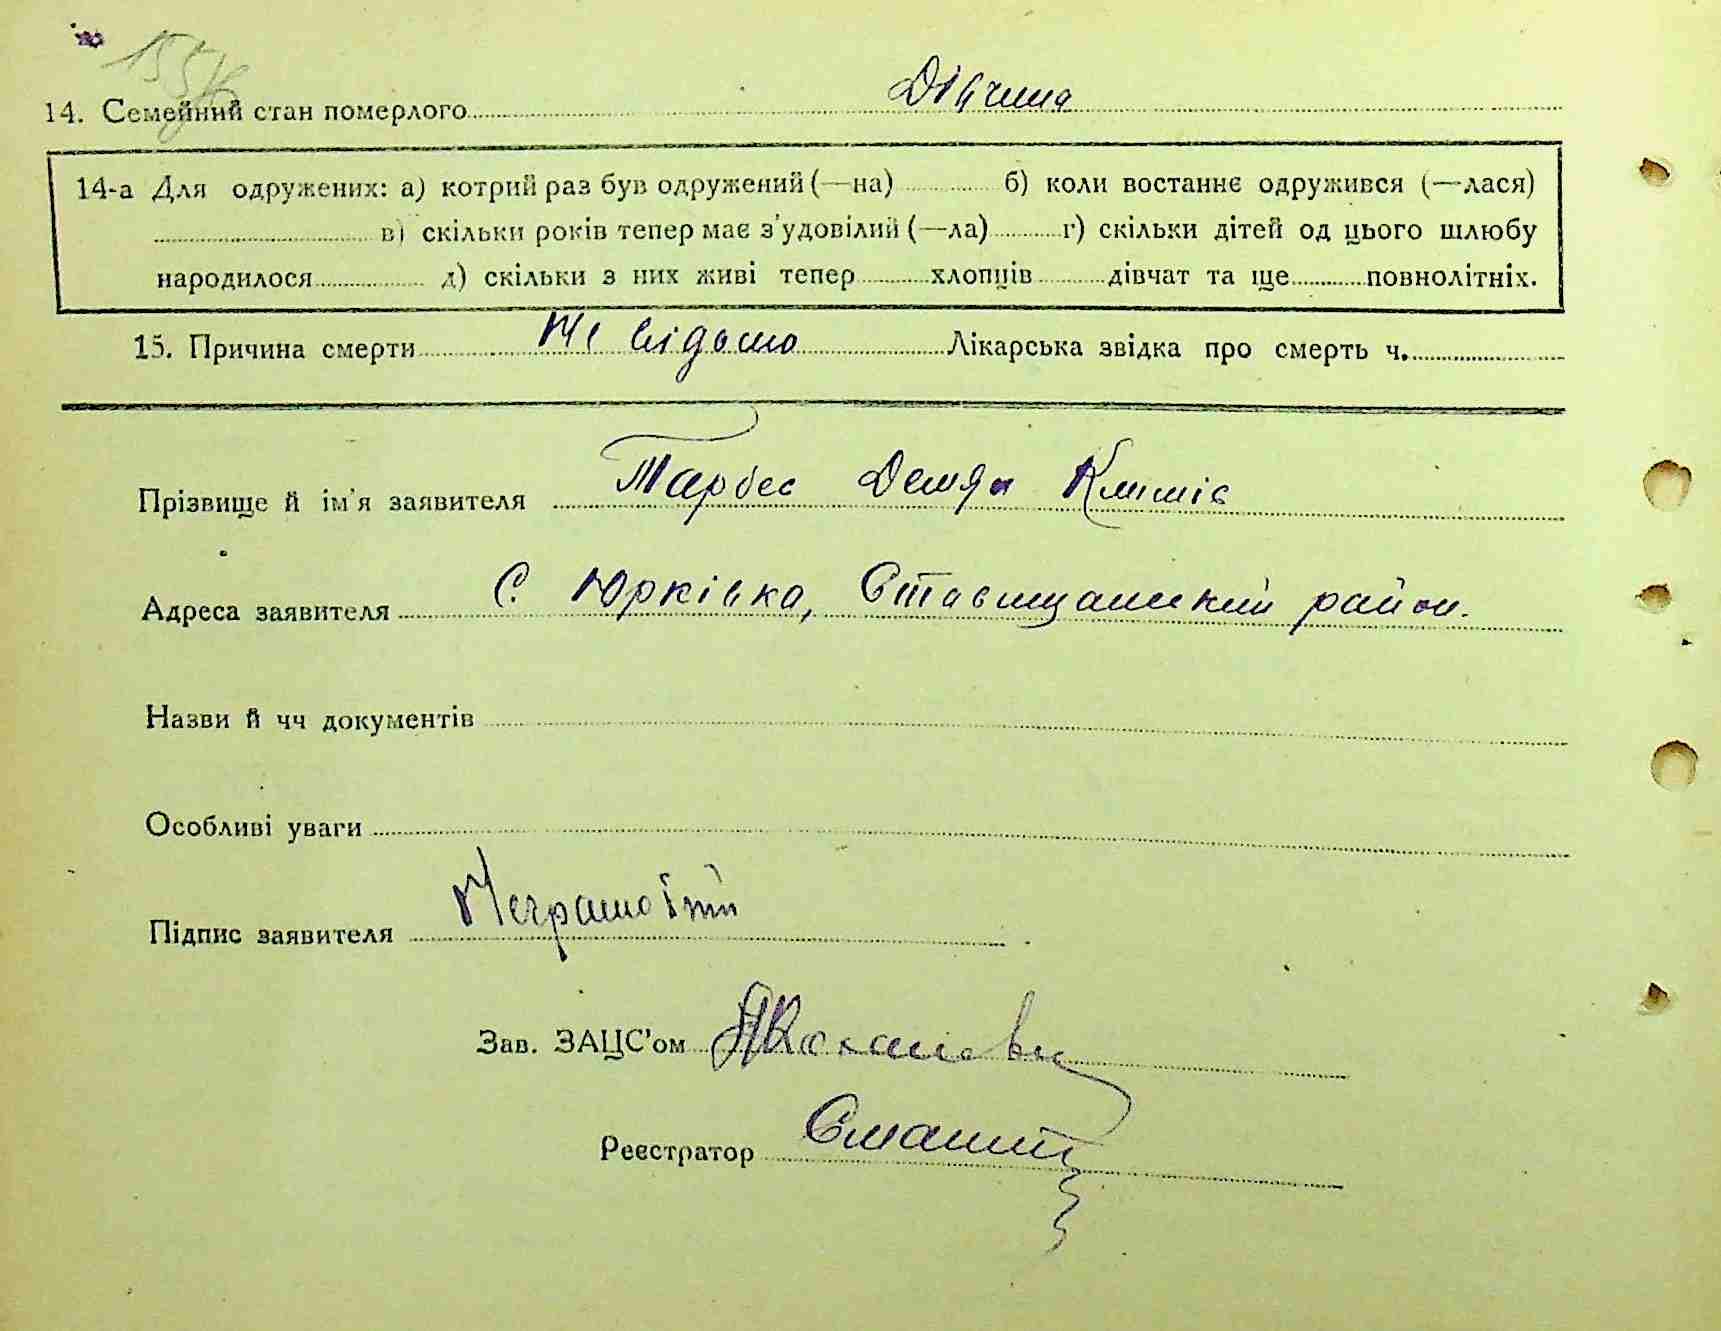 14. Семейний стан померлого Дівчина
14-а Для одружених: а) котрий раз був одружений (—на) б) коли востаннє одружився (—лася)
в) скільки років тепер має з'удовілий (—ла) г) скільки дітей од цього шлюбу
народилося д) скільки з них живі тепер хлопців дівчат та ще повнолітніх.
15. Причина смерти Не відомо Лікарська звідка про смерть ч.
Прізвище й ім'я заявителя Гарбес Демян Климів
Адреса заявителя С. Юрківка, Ставищанский район.
Назви й чч документів
Особливі уваги
Підпис заявителя Неграмотній
Зав. ЗАЦС'ом
Реєстратор